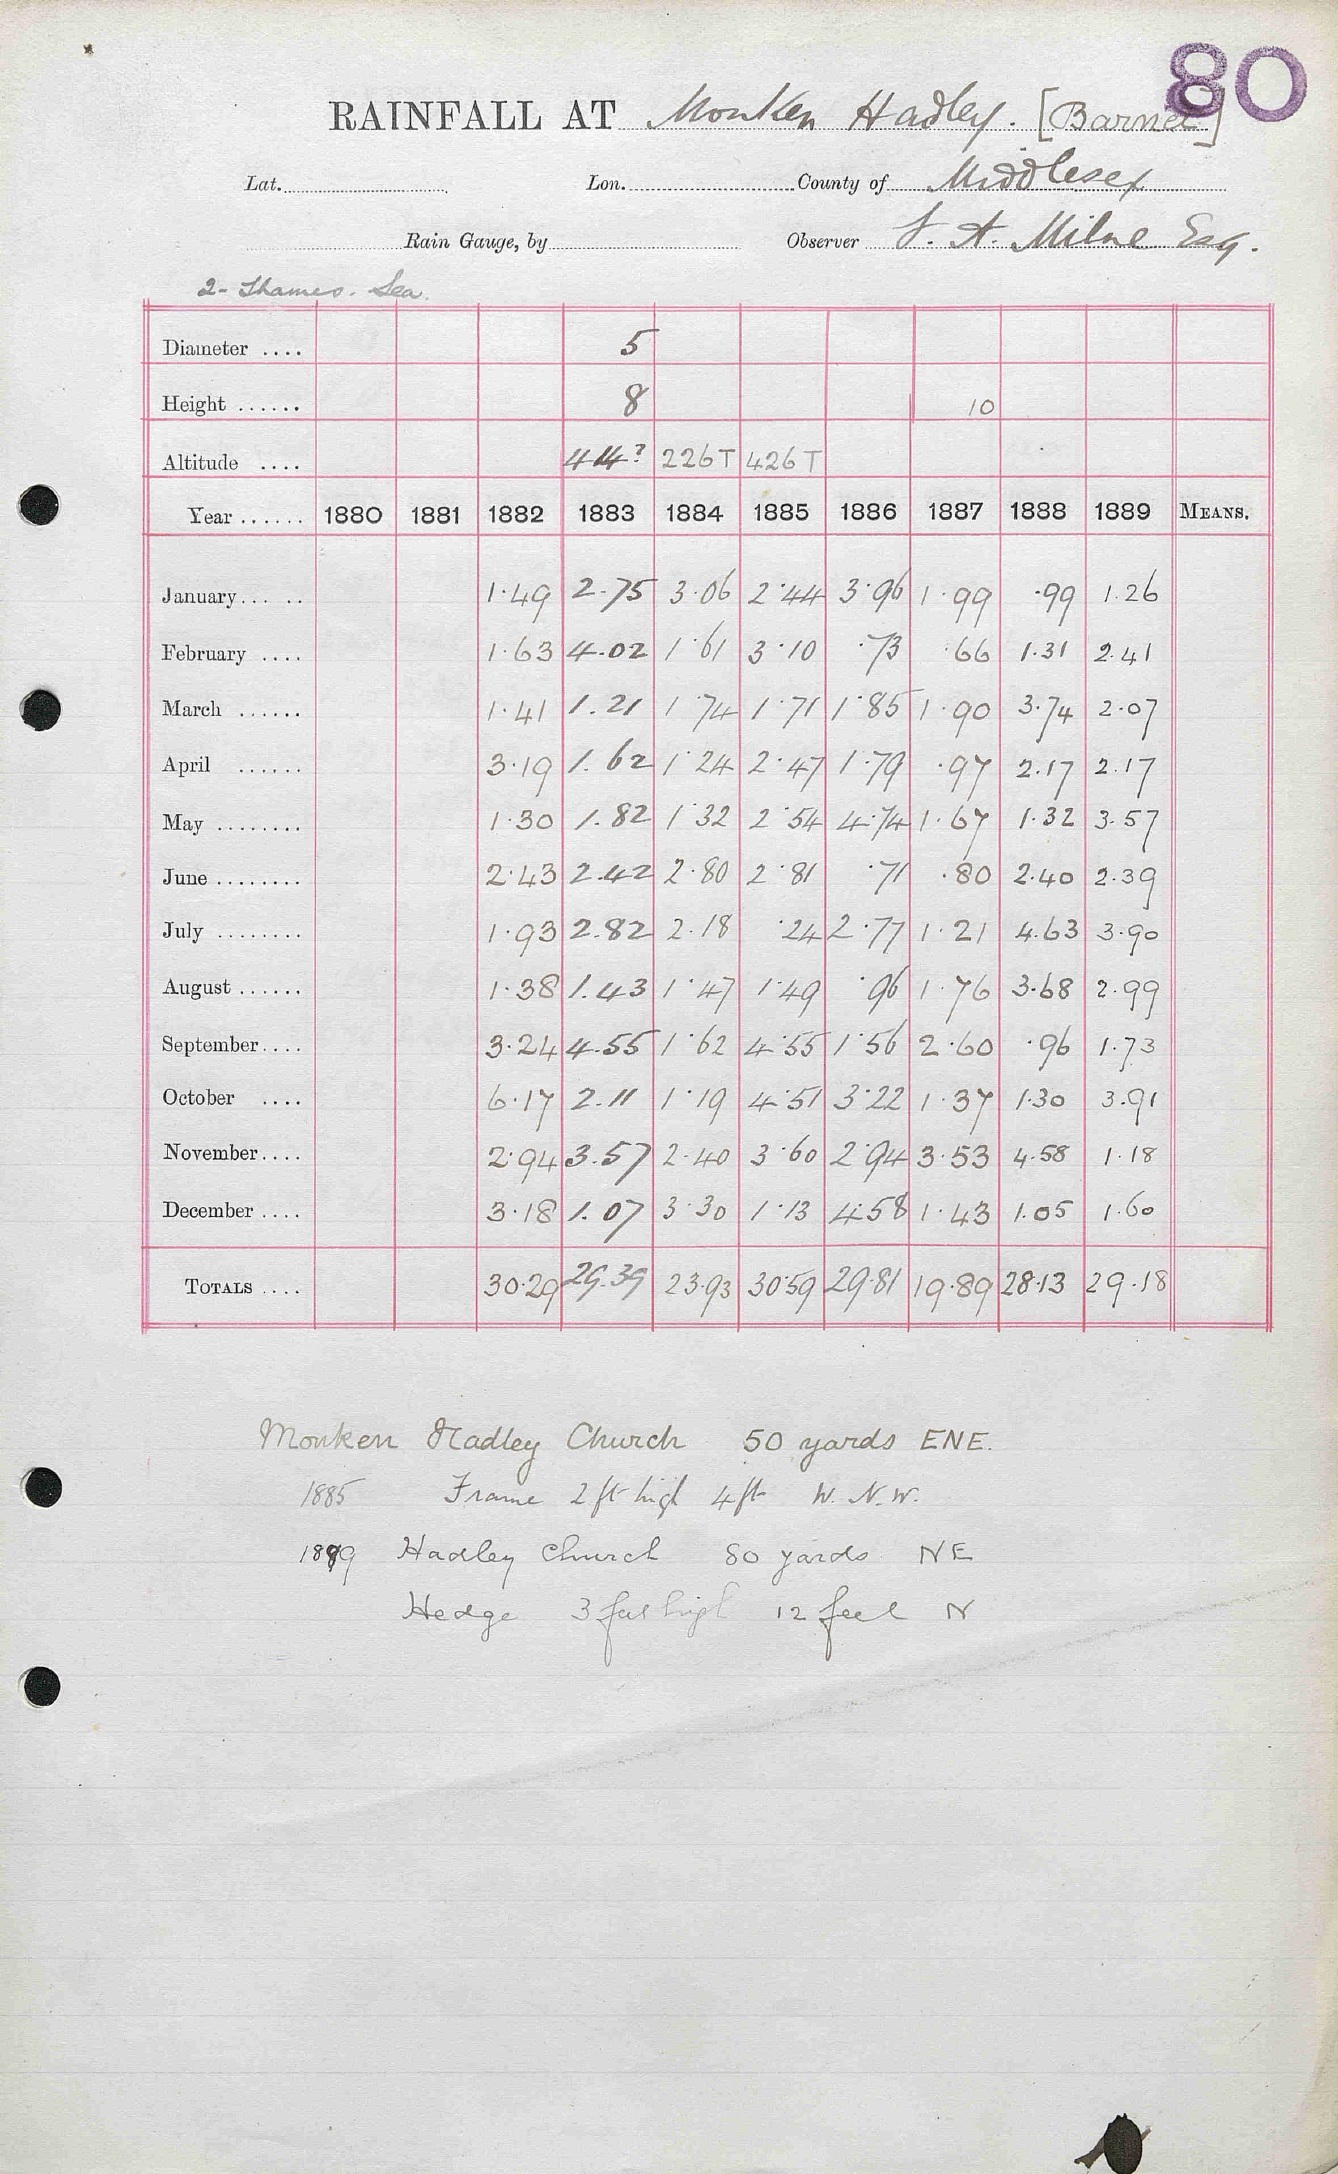 80
RAINFALL AT Monken Hadley. [Barnet]
Lat. Lon. County of Middlesex
Rain Gauge, by Observer F. A. Milne Esq.
2- Thames. Sea.
Diameter .... 5
Height ...... 8 10
Altitude .... 226T 426T
Year ...... 1880 1881 1882 1883 1884 1885 1886 1887 1888 1889 MEANS.
January... .. 1·49 2.75 3·06 2·44 3·96 1·99 ·99 1.26
February .... 1·63 4.02 1·61 3·10 ·73 ·66 1.31 2.41
March ...... 1·41 1.21 1·74 1·71 1·85 1·90 3.74 2.07
April ...... 3·19 1.62 1·24 2·47 1·79 ·97 2.17 2.17
May ........ 1·30 1.82 1·32 2·54 4·74 1·67 1.32 3.57
June ........ 2·43 2.42 2·80 2·81 ·71 ·80 2.40 2.39
July ........ 1·93 2.82 2·18 ·24 2·77 1·21 4.63 3.90
August ...... 1·38 1.43 1·47 1·49 ·96 1·76 3.68 2.99
September.... 3·24 4.55 1·62 4·55 1·56 2·60 ·96 1.73
October .... 6·17 2.11 1·19 4·51 3·22 1·37 1.30 3.91
November.... 2·94 3.57 2·40 3·60 2·94 3·53 4.58 1.18
December .... 3·18 1.07 3·30 1·13 4·58 1·43 1.05 1.60
TOTALS .... 30·29 29.39 23·93 30·59 29·81 19·89 28·13 29.18
Monken Hadley Church 50 yards ENE.
1885 Frame 2 ft high 4 ft W. N. W.
Hadley Church 80 yards NE
Hedge 3 feet high 12 feet N